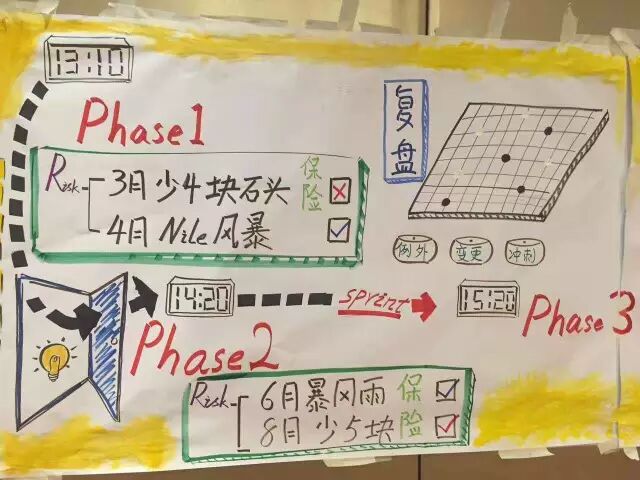 13:10
Phase1
Risk
3月少4块石头
4月Nile风暴
保险
复盘
例外
变更
冲刺
14:20
sprint
15:20
Phase2
Phase3
Risk
6月暴风雨
8月少5块
保险